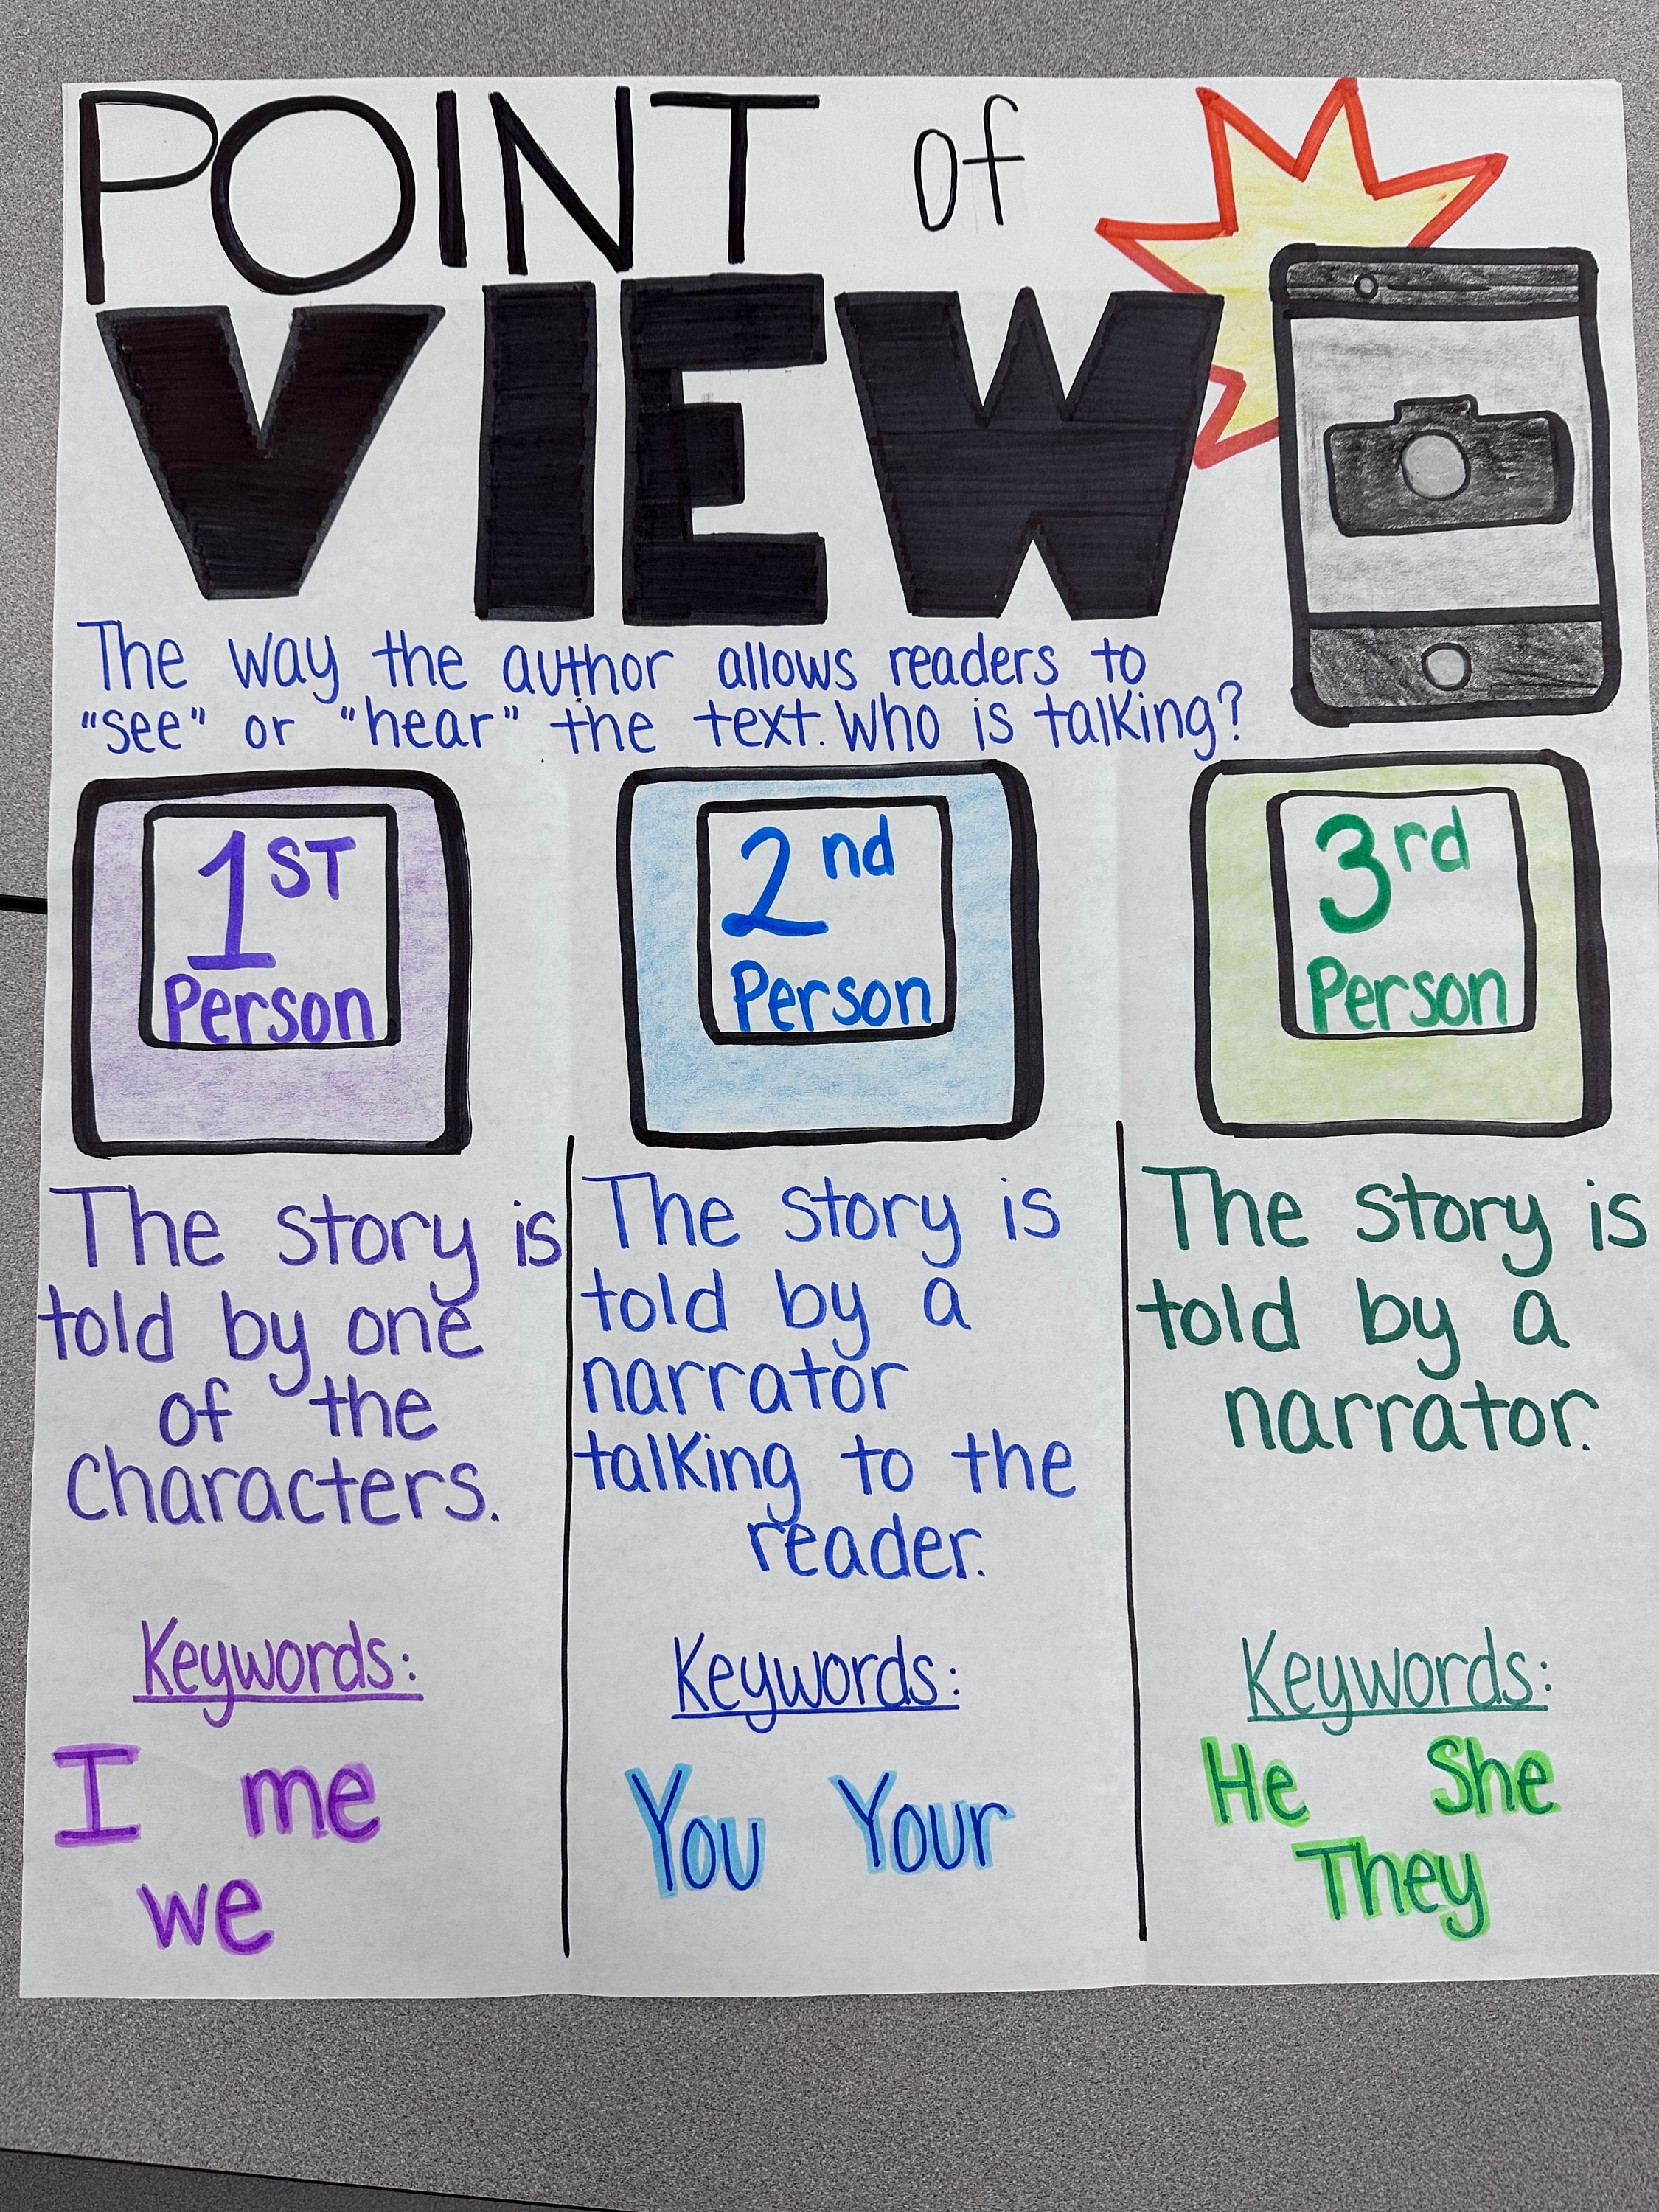 POINT of
VIEW
The way the author allows readers to
"see" or "hear" the text. Who is talking?
1ST
Person
The story is
told by one
of the
characters.
Keywords:
I me
we
2nd
Person
The story is
told by a
narrator
talking to the
reader.
Keywords:
You Your
3rd
Person
The story is
told by a
narrator.
Keywords:
He She
They